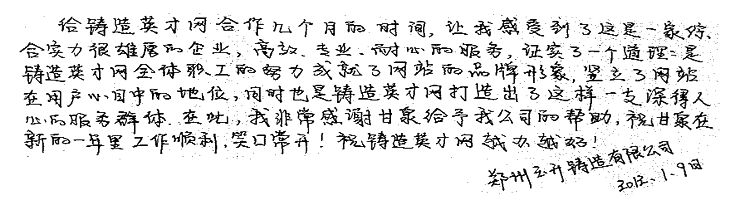 给铸造英才网合作几个月的时间,让我感受到了这是一家综
合实力很雄厚的企业,高效、专业、耐心的服务,证实了一个道理:是
铸造英才网全体职工的努力成就了网站的品牌形象,竖立了网站
在用户心目中的地位,同时也是铸造英才网打造出了这样一支深得人
心的服务群体.在此,我非常感谢甘泉给予我公司的帮助,祝甘泉在
新的一年里工作顺利,笑口常开!祝铸造英才网越办越好!
郑州玉升铸造有限公司
2012.1.9日